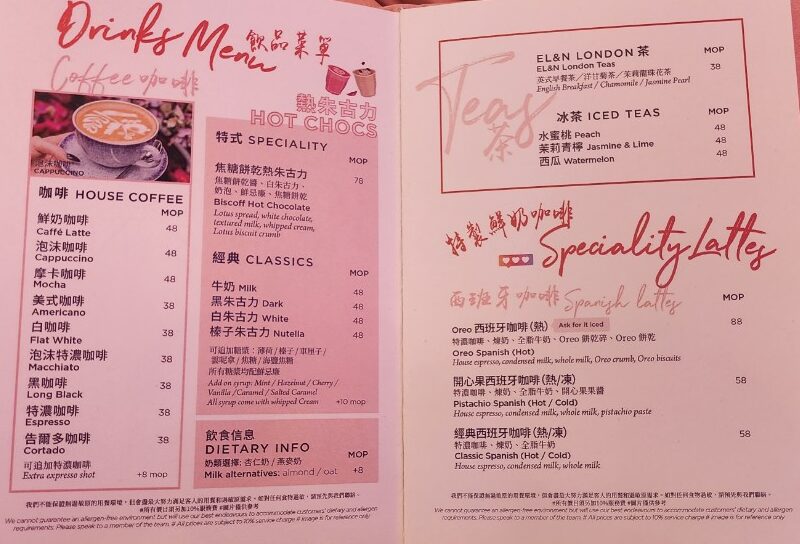 Drinks Menu 飲品菜單
Coffee 咖啡
泡沫咖啡
CAPPUCCINO
咖啡 HOUSE COFFEE
MOP
鮮奶咖啡
Caffé Latte 48
泡沫咖啡
Cappuccino 48
摩卡咖啡
Mocha 48
美式咖啡
Americano 38
白咖啡
Flat White 38
泡沫特濃咖啡
Macchiato 38
黑咖啡
Long Black 38
特濃咖啡
Espresso 38
告爾多咖啡
Cortado 38
可追加特濃咖啡
Extra expresso shot +8 mop
熱朱古力
HOT CHOCS
特式 SPECIALITY
MOP
焦糖餅乾熱朱古力 78
焦糖餅乾醬、白朱古力、
奶泡、鮮忌廉、焦糖餅乾
Biscoff Hot Chocolate
Lotus spread, white chocolate,
textured milk, whipped cream,
Lotus biscuit crumb
經典 CLASSICS
MOP
牛奶 Milk 48
黑朱古力 Dark 48
白朱古力 White 48
榛子朱古力 Nutella 48
可追加糖漿：薄荷/榛子/車厘子/
雲呢拿/焦糖/海鹽焦糖
所有糖漿均配鮮忌廉
Add on syrup: Mint / Hazelnut / Cherry /
Vanilla / Caramel / Salted Caramel
All syrup come with whipped Cream +10 mop
飲食信息
DIETARY INFO
MOP
奶類選擇: 杏仁奶 / 燕麥奶
Milk alternatives: almond / oat +8
我們不能保證無過敏原的用餐環境，但會盡最大努力滿足客人的用餐和過敏原需求。如對任何食物過敏，請預先與我們聯絡。
#所有價目須另加10%服務費 #圖片僅供參考
We cannot guarantee an allergen-free environment but will use our best endeavours to accommodate customers' dietary and allergen
requirements. Please speak to a member of the team. # All prices are subject to 10% service charge # Image is for reference only
Teas
茶
EL&N LONDON 茶 MOP
EL&N London Teas 38
英式早餐茶／洋甘菊茶／茉莉龍珠花茶
English Breakfast / Chamomile / Jasmine Pearl
冰茶 ICED TEAS MOP
水蜜桃 Peach 48
茉莉青檸 Jasmine & Lime 48
西瓜 Watermelon 48
特製鮮奶咖啡
Speciality Lattes
西班牙咖啡 Spanish lattes MOP
Oreo 西班牙咖啡 (熱) Ask for it iced 88
特濃咖啡、煉奶、全脂牛奶、Oreo 餅乾碎、Oreo 餅乾
Oreo Spanish (Hot)
House espresso, condensed milk, whole milk, Oreo crumb, Oreo biscuits
開心果西班牙咖啡 (熱/凍) 58
特濃咖啡、煉奶、全脂牛奶、開心果果醬
Pistachio Spanish (Hot / Cold)
House espresso, condensed milk, whole milk, pistachio paste
經典西班牙咖啡 (熱/凍) 58
特濃咖啡、煉奶、全脂牛奶
Classic Spanish (Hot / Cold)
House espresso, condensed milk, whole milk
我們不能保證無過敏原的用餐環境，但會盡最大努力滿足客人的用餐和過敏原需求。如對任何食物過敏，請預先與我們聯絡。
#所有價目須另加10%服務費 #圖片僅供參考
We cannot guarantee an allergen-free environment but will use our best endeavours to accommodate customers' dietary and allergen
requirements. Please speak to a member of the team. # All prices are subject to 10% service charge # Image is for reference only